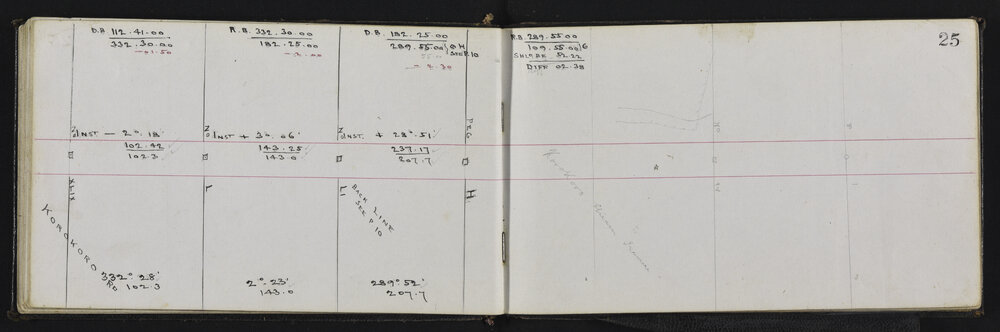 D.B 112.41.00
332.30.00
-01.50
R.B. 332.30.00
182.25.00
-2.00
D.B. 182.25.00
289.55.00 } @ H
SEE P 10
-2.30
R.B. 289.55.00
109.55.00 } G
SHLD BE 52.22
DIFF 02.38
25
INST - 2° 18'
102.42
102.3
No
INST + 3° 06'
143.25
143.0
No
INST + 28° 51'
237.17
207.7
PEG
H
XLIX
L
LI
BACK LINE
SEE P 10
KOROKORO RD
332° 28'
102.3
2° 23'
143.0
289° 52'
207.7
Korokoro Stream